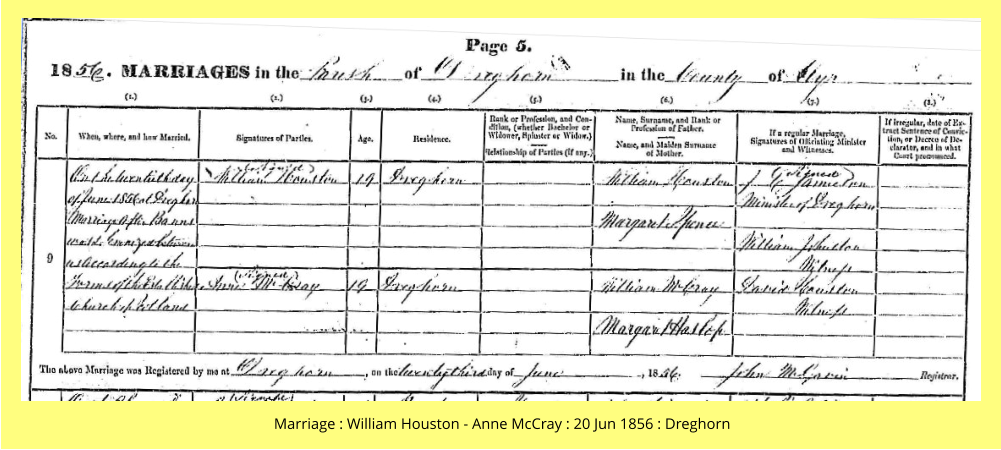 Page 5.
1856. MARRIAGES in the Parish of Dreghorn in the County of Ayr
(1.) (2.) (3.) (4.) (5.) (6.) (7.) (8.)
No. When, where, and how Married. Signatures of Parties. Age. Residence. Rank or Profession, and Condition, (whether Bachelor or Widower, Spinster or Widow.) Relationship of Parties (if any.) Name, Surname, and Rank or Profession of Father. Name, and Maiden Surname of Mother. If a regular Marriage, Signatures of Officiating Minister and Witnesses. If irregular, date of Extract Sentence of Conviction, or Decree of Declarator, and in what Court pronounced.
On the twentieth day (Signed) William Houston 19 Dreghorn William Houston (Signed) J. G. Jamieson
of June 1856 at Dreghorn Minister of Dreghorn
Marriage After Banns Margaret Spence
was Solemnized between William Johnston
9 us According to the Witness
Forms of the Established (Signed) Anne McCray 19 Dreghorn William McCray David Houston
Church of Scotland Witness
Margaret Haslop
The above Marriage was Registered by me at Dreghorn, on the twenty third day of June, 1856. John McGavin Registrar.
Marriage : William Houston - Anne McCray : 20 Jun 1856 : Dreghorn